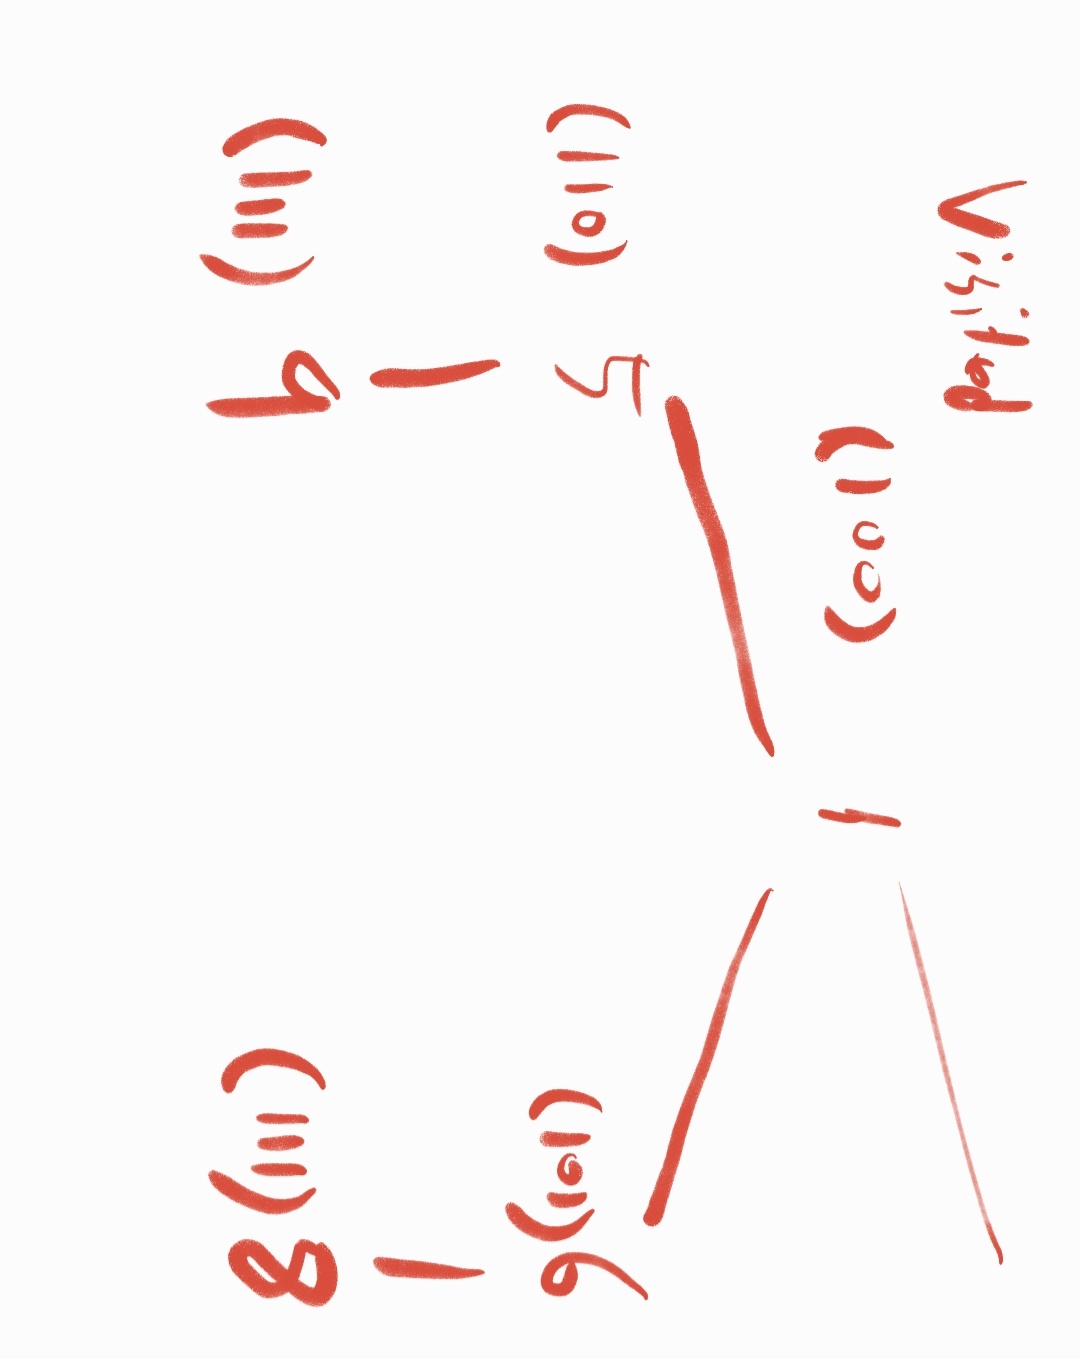 Visited
(100) 1
(110) 5
(101) 6
(111) 9
(111) 8